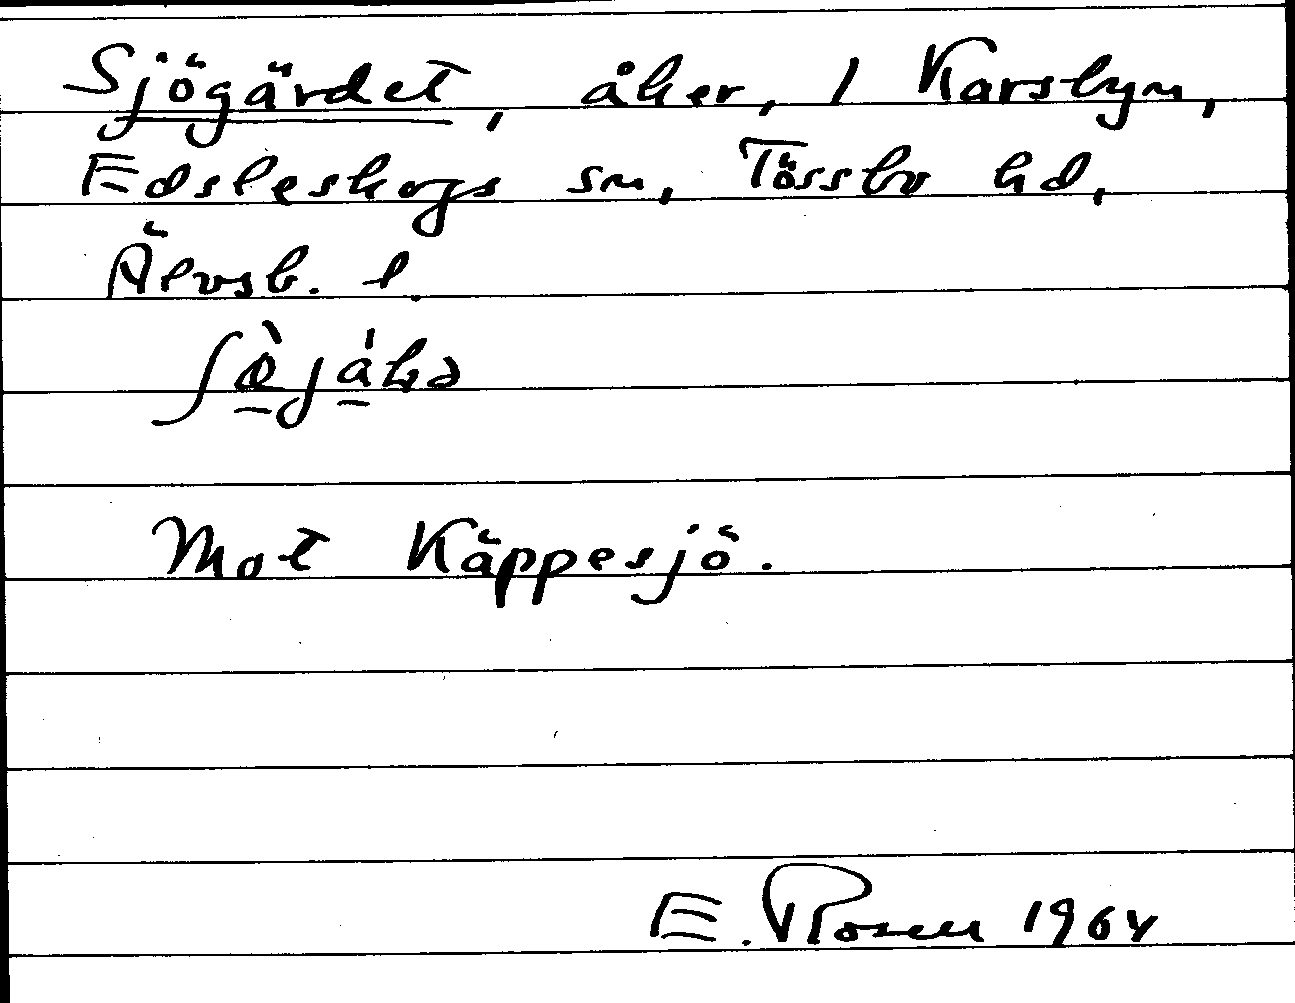 Sjögärdet, åker, 1 Karsbyn,
Edsleskogs sn, Tössbo hd,
Älvsb. l.
Mot Käppesjö.
E. Rosell 1964